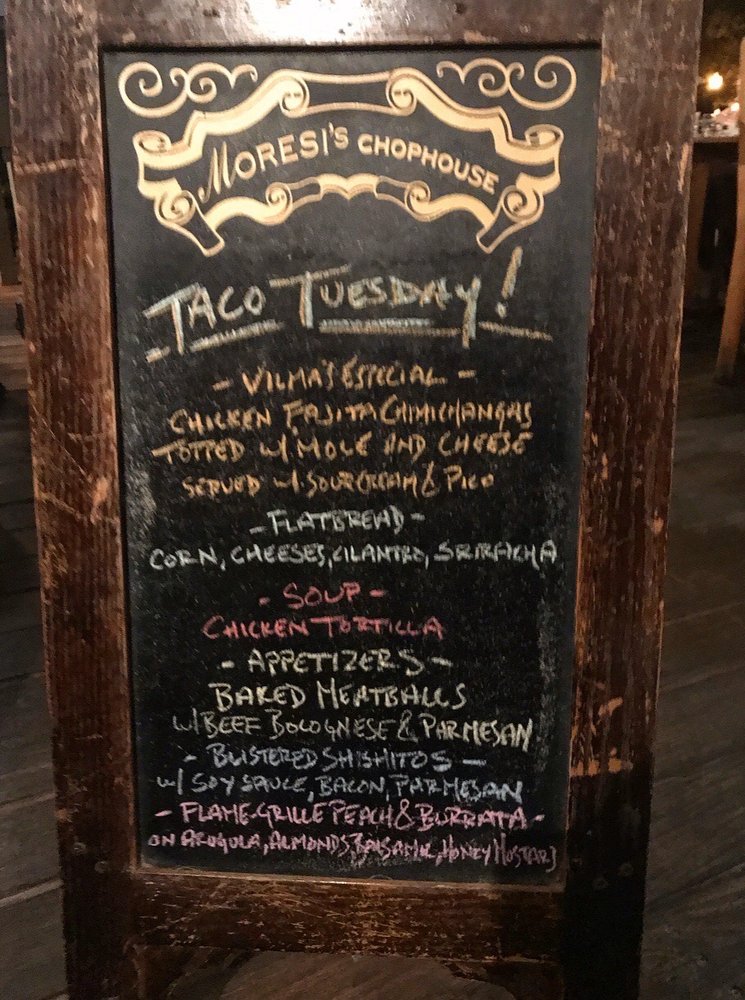 MORESI'S CHOPHOUSE
TACO TUESDAY!
- VILMA'S ESPECIAL -
CHICKEN FAJITA CHIMICHANGAS
TOPPED W/ MOLE AND CHEESE
SERVED W/ SOUR CREAM & PICO
- FLATBREAD -
CORN, CHEESES, CILANTRO, SRIRACHA
- SOUP -
CHICKEN TORTILLA
- APPETIZERS -
BAKED MEATBALLS
W/ BEEF BOLOGNESE & PARMESAN
- BLISTERED SHISHITOS -
W/ SOY SAUCE, BACON, PARMESAN
- FLAME-GRILLE PEACH & BURRATA -
ON ARUGULA, ALMONDS, BALSAMIC, HONEY MUSTARD